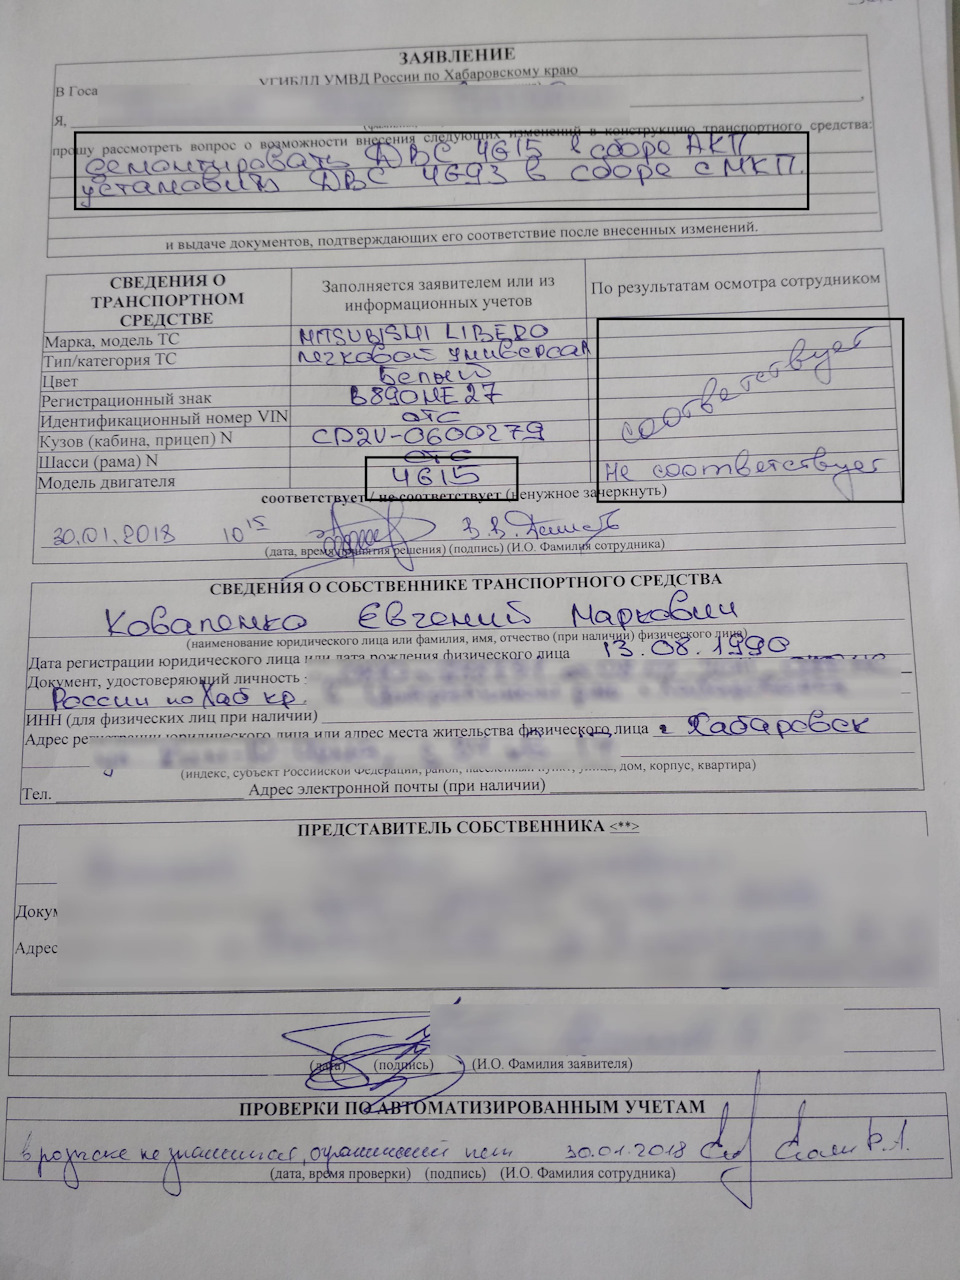 ЗАЯВЛЕНИЕ
В Госа УГИБДД УМВД России по Хабаровскому краю
Я,
прошу рассмотреть вопрос о возможности внесения следующих изменений в конструкцию транспортного средства:
демонтировать ДВС 4G15 в сборе АКП
установить ДВС 4G93 в сборе с МКП.
и выдаче документов, подтверждающих его соответствие после внесенных изменений.
СВЕДЕНИЯ О ТРАНСПОРТНОМ СРЕДСТВЕ
Заполняется заявителем или из информационных учетов
По результатам осмотра сотрудником
Марка, модель ТС MITSUBISHI LIBERO
Тип/категория ТС легковой универсал
Цвет Белый
соответствует
Регистрационный знак В890МЕ27
Идентификационный номер VIN ОТС
Кузов (кабина, прицеп) N CD2V-0600279
Шасси (рама) N ОТС
Модель двигателя 4G15 Не соответствует
соответствует / не соответствует (ненужное зачеркнуть)
30.01.2018 10 15 В.В.
(дата, время принятия решения) (подпись) (И.О. Фамилия сотрудника)
СВЕДЕНИЯ О СОБСТВЕННИКЕ ТРАНСПОРТНОГО СРЕДСТВА
Коваленко Евгений Маркович
(наименование юридического лица или фамилия, имя, отчество (при наличии) физического лица)
Дата регистрации юридического лица или дата рождения физического лица 13.08.1990
Документ, удостоверяющий личность
России по Хаб кр.
ИНН (для физических лиц при наличии)
Адрес регистрации юридического лица или адрес места жительства физического лица г. Хабаровск
(индекс, субъект Российской Федерации, район, населенный пункт, улица, дом, корпус, квартира)
Тел. Адрес электронной почты (при наличии)
ПРЕДСТАВИТЕЛЬ СОБСТВЕННИКА <**>
Докум
Адрес
(дата) (подпись) (И.О. Фамилия заявителя)
ПРОВЕРКИ ПО АВТОМАТИЗИРОВАННЫМ УЧЕТАМ
в розыске не значится, ограничений нет 30.01.2018
(дата, время проверки) (подпись) (И.О. Фамилия сотрудника)